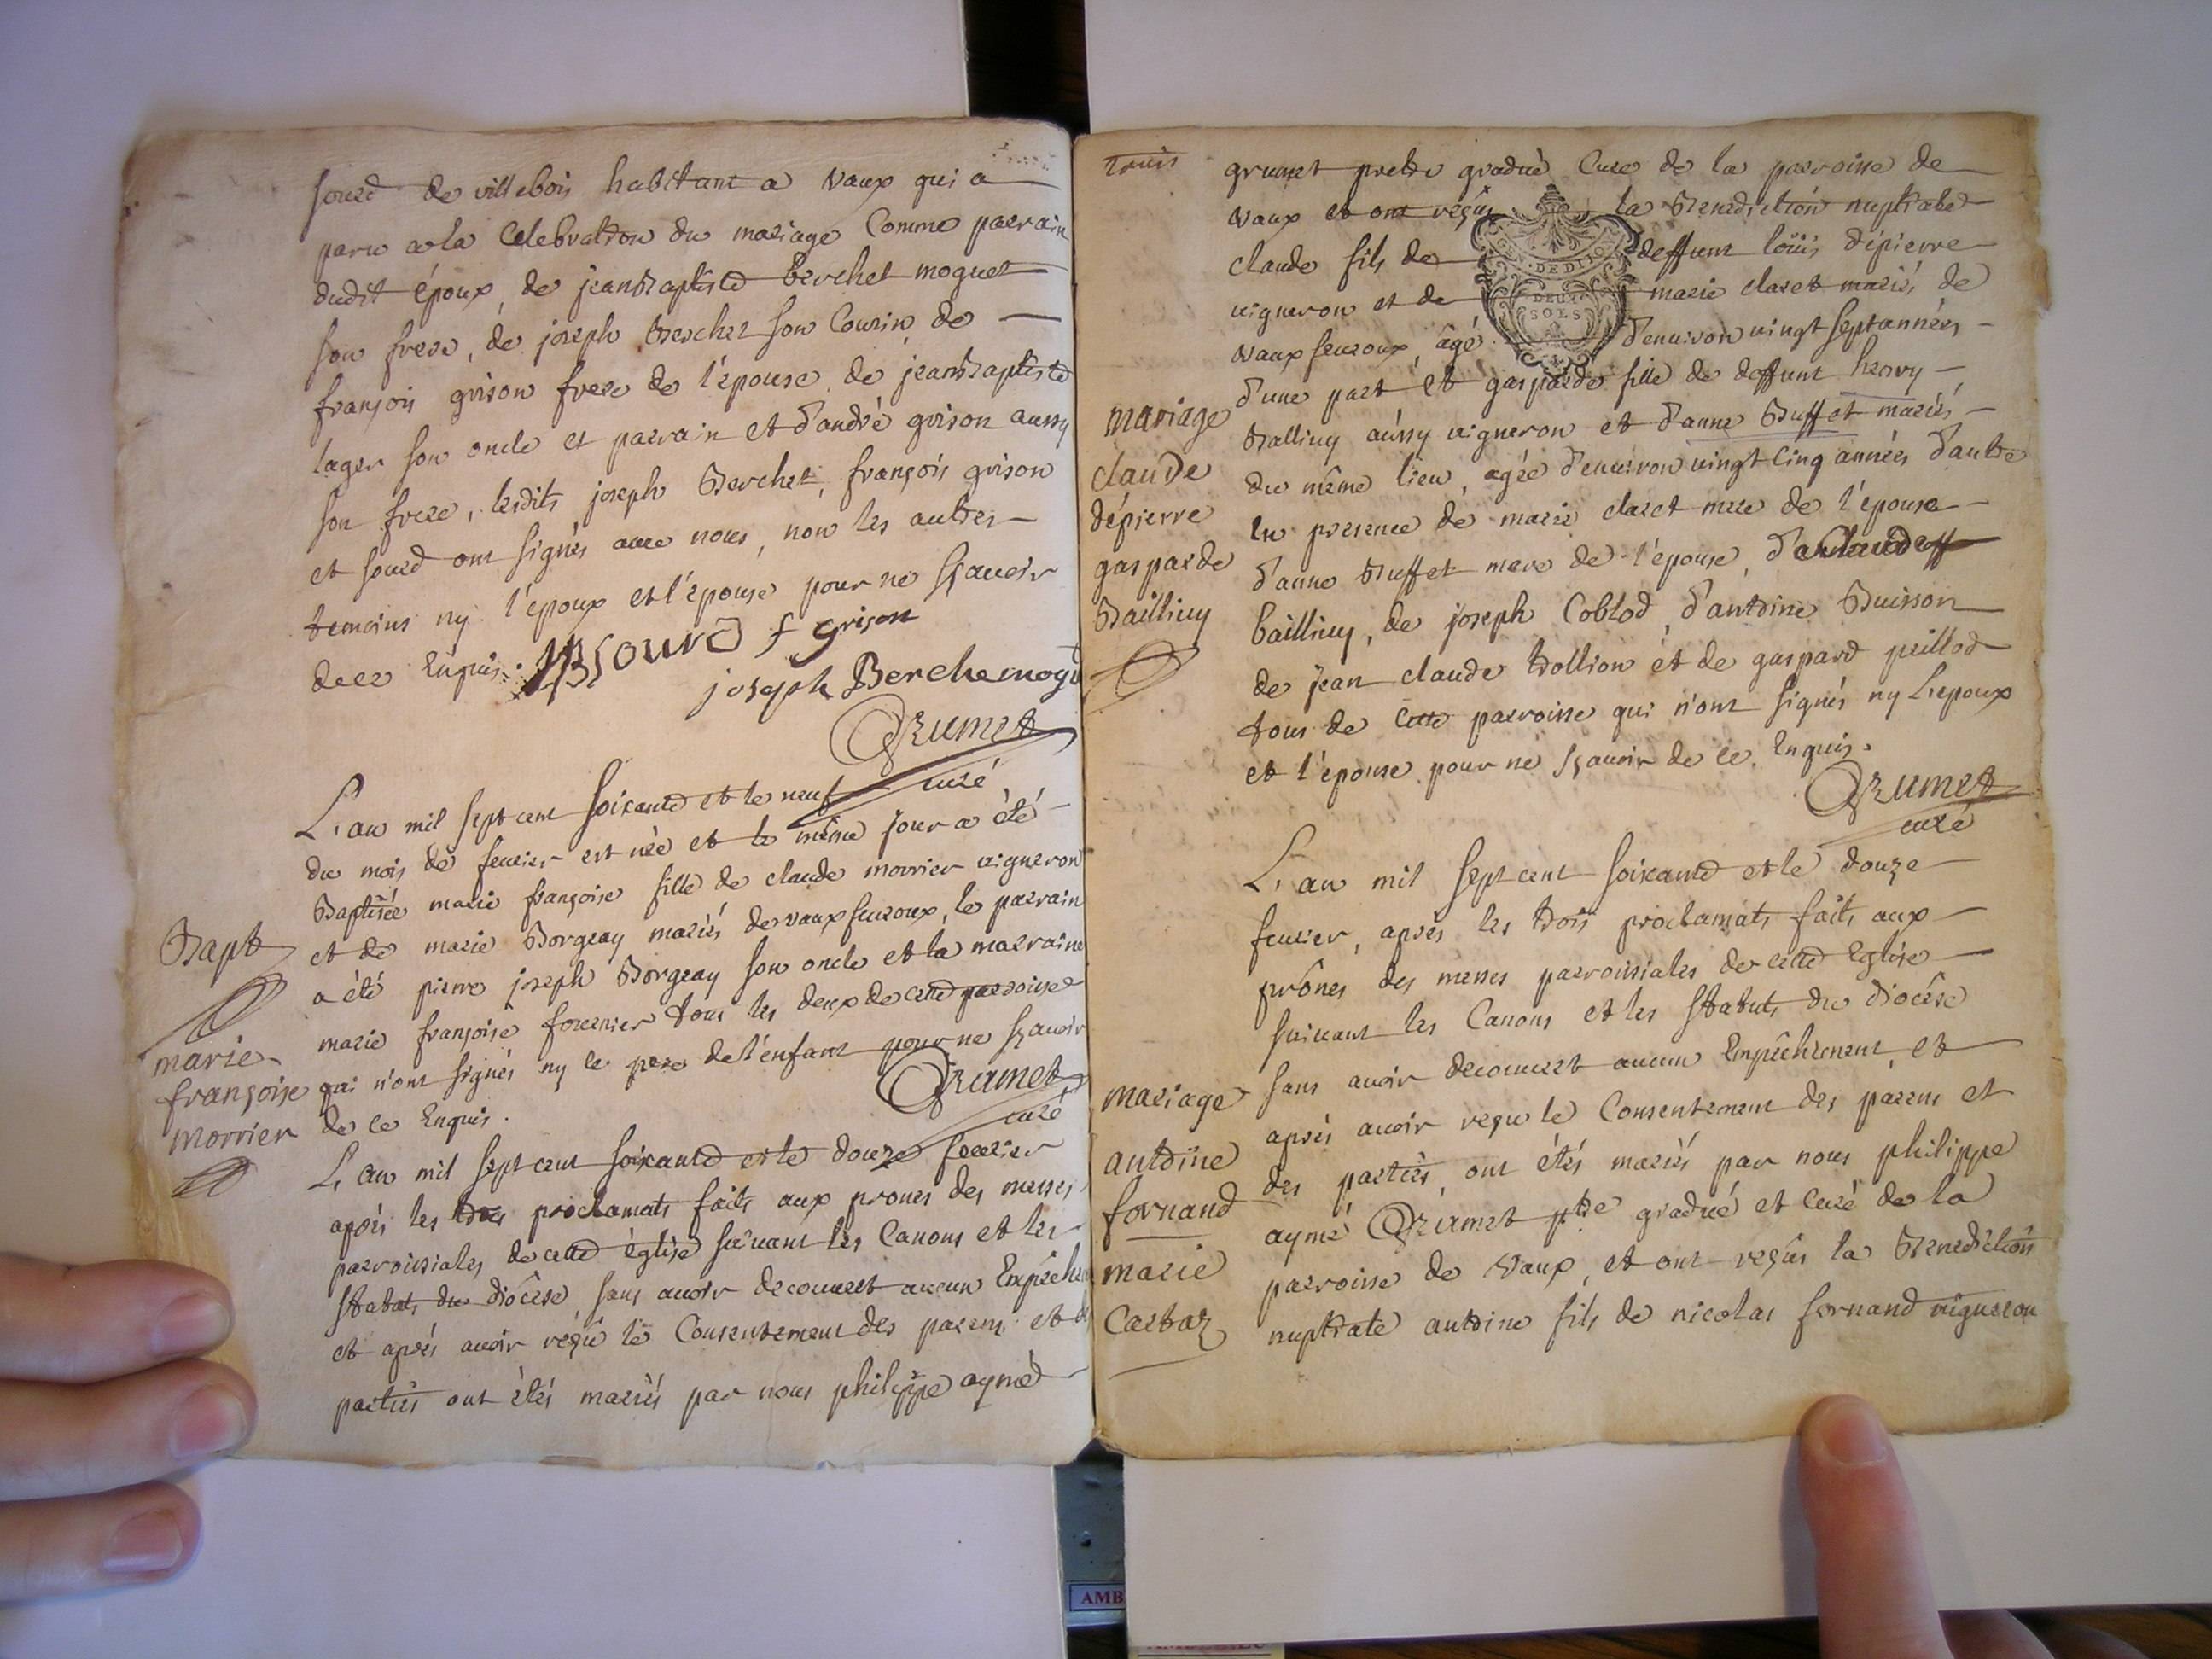 sourd de villebois habitant a vaux qui a
paru a la Celebration du mariage Comme parrain
dudit époux, de jeanbaptiste berchet moguet
son frere, de joseph Berchet son Cousin, de
françois grison frere de l'epouse, de jeanbaptiste
lager son oncle et parrain et d'andré grison aussy
son frere, lesdits joseph Berchet, françois grison
et sourd ont signés avec nous, non les autres
temoins ny l'époux et l'épouse pour ne sçavoir
de ce Enquis. JB sourd f grison
joseph Berchemogu
Grumet
curé
L'an mil sept cent soixante et le neuf
du mois de fevrier est née et le même jour a été
Baptisée marie françoise fille de claude morrier vigneron
et de marie Borgeay mariés de vaux fevroux, le parrain
a été pierre joseph Borgeay son oncle et la marraine
marie françoise fournier tous les deux de cette parroisse
qui n'ont signés ny le pere de l'enfant pour ne sçavoir
de ce Enquis.
Grumet
curé
Bapt
marie
françoise
morrier
L'an mil sept cent soixante et le douze fevrier
aprés les trois proclamats faits aux prones des messes
parroissiales de cette église suivant les Canons et les
statuts du diocèse, sans avoir decouvert aucun Empêche
et aprés avoir reçu le Consentement des parens et d
parties ont étés mariés par nous philippe aymé
trois
grumet prebtre gradué Curé de la parroisse de
vaux et ont reçus la Benediction nuptiale
claude fils de deffunt loüis dépierre
vigneron et de marie claret mariés de
vaux fevroux, âgé d'environ vingt sept années
d'une part et gasparde fille de deffunt henry
Bailliuy aussy vigneron et d'anne Buffet mariés
du même lieu, agée d'environ vingt Cinq années d'autre
En presence de marie claret mere de l'épouse
d'anne Buffet mere de l'épouse,
bailliuy, de joseph Coblod, d'antoine Buisson
de jean claude trollion et de gaspard peillod
tous de Cette parroisse qui n'ont signés ny L'epoux
et l'épouse pour ne sçavoir de ce Enquis.
Grumet
curé
CON. DE DIJON
DEUX
SOLS
mariage
claude
dépierre
gasparde
Bailliuy
L'an mil sept cent soixante et le douze
fevrier, aprés les trois proclamats faits aux
prônes des messes parroissiales de cette Eglise
suivant les Canons et les Statuts du diocèse
sans avoir decouvert aucun Empêchement et
aprés avoir reçu le Consentement des parens et
des parties, ont étés mariés par nous philippe
aymé Grumet ptre gradué et Curé de la
parroisse de Vaux, et ont reçus la Benediction
nuptiale antoine fils de nicolas fornand vigneron
mariage
antoine
fornand
marie
Cartaz
AMB